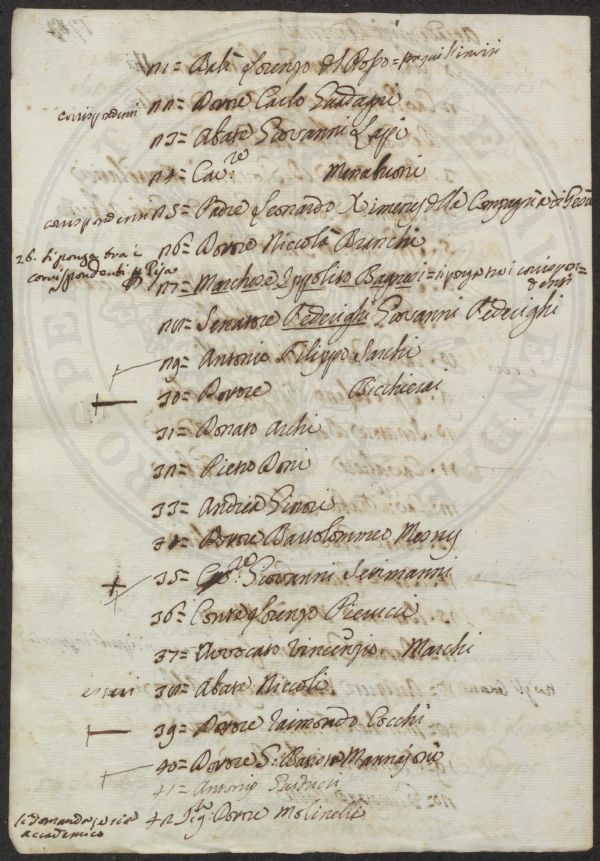 21= Balì Lorenzo del Rosso=
corrispondenti 22= Dottore Carlo Guadagni
23= Abate Giovanni Lapi
24= Cav:re Menabuoni
corrispondenti 25= Padre Leonardo Ximenes della Compagnia di Gesù
26= Dottore Niccolò Branchi
26. si ponga tra i corrispondenti Pisa
27= Marchese Ippolito Bagnesi= si ponga tra i corrispon=
denti
28= Senatore Federighi Giovanni Federighi
29= Antonio Filippo
30= Dottore Bicchierai
31= Donato Archi
32= Pietro Doni
33= Andrea Ginori
34= Dottore Bartolommeo Mesny
35= Giovanni Settimanni
36= Conte Lorenzo Pierucci
37= Avvocato Vincenzio Marchi
esteri 38= Abate Niccoli
39= Dottore Raimondo Cocchi
40= Dottore Manajoni
41= Antonio
si domanda se sia
accademico
42 Sig: Dottore Molinelli